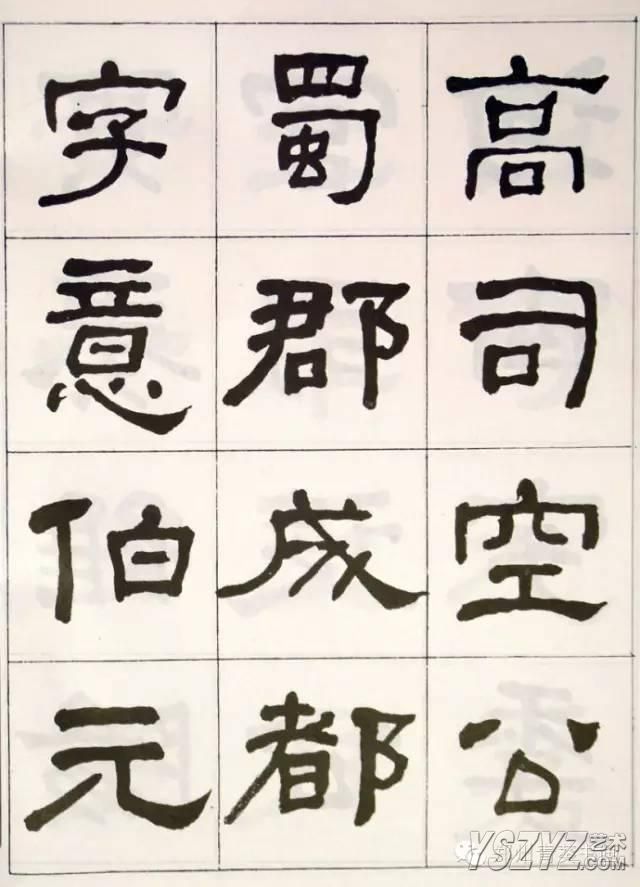 高司空公
蜀郡成都
字意伯元
YSZYZ艺术